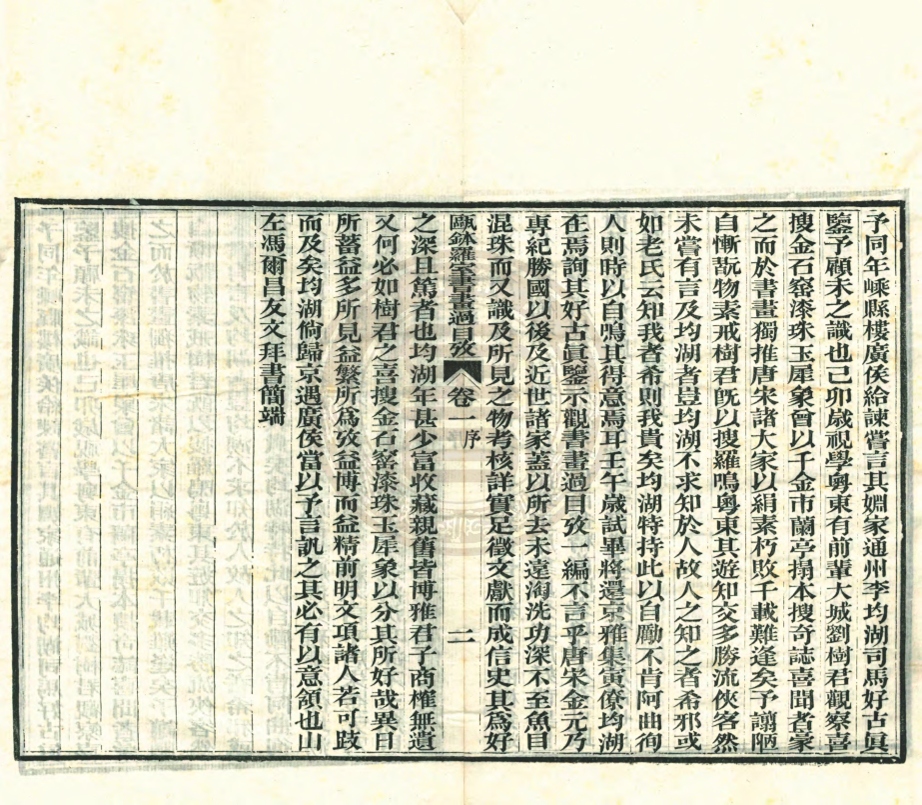 予同年嵊縣樓廣侯給諫嘗言其婣家通州李均湖司馬好古眞
鑒予顧未之識也己卯歲視學粵東有前輩大城劉樹君觀察喜
搜金石窰漆珠玉犀象曾以千金市蘭亭搨本搜奇誌喜聞者豪
之而於書畫獨推唐宋諸大家以絹素朽敗千載難逢矣予讓陋
自慚翫物素戒樹君旣以搜羅鳴粵東其遊知交多勝流俠客然
未嘗有言及均湖者豈均湖不求知於人故人之知之者希邪或
如老氏云知我者希則我貴矣均湖特持此以自勵不肯阿曲徇
人則時以自鳴其得意焉耳壬午歲試畢將還京雅集寅僚均湖
在焉詢其好古眞鑒示觀書畫過目攷一編不言乎唐宋金元乃
專紀勝國以後及近世諸家蓋以所去未遠淘洗功深不至魚目
混珠而又識及所見之物考核詳實足徵文獻而成信史其爲好
甌鉢羅室書畫過目攷 卷一 序 二
之深且篤者也均湖年甚少富收藏親舊皆博雅君子商榷無遺
又何必如樹君之喜搜金石窰漆珠玉犀象以分其所好哉異日
所蓄益多所見益繁所爲攷益博而益精前明文項諸人若可跂
而及矣均湖倘歸京遇廣侯當以予言訊之其必有以意領也山
左馮爾昌友文拜書簡端